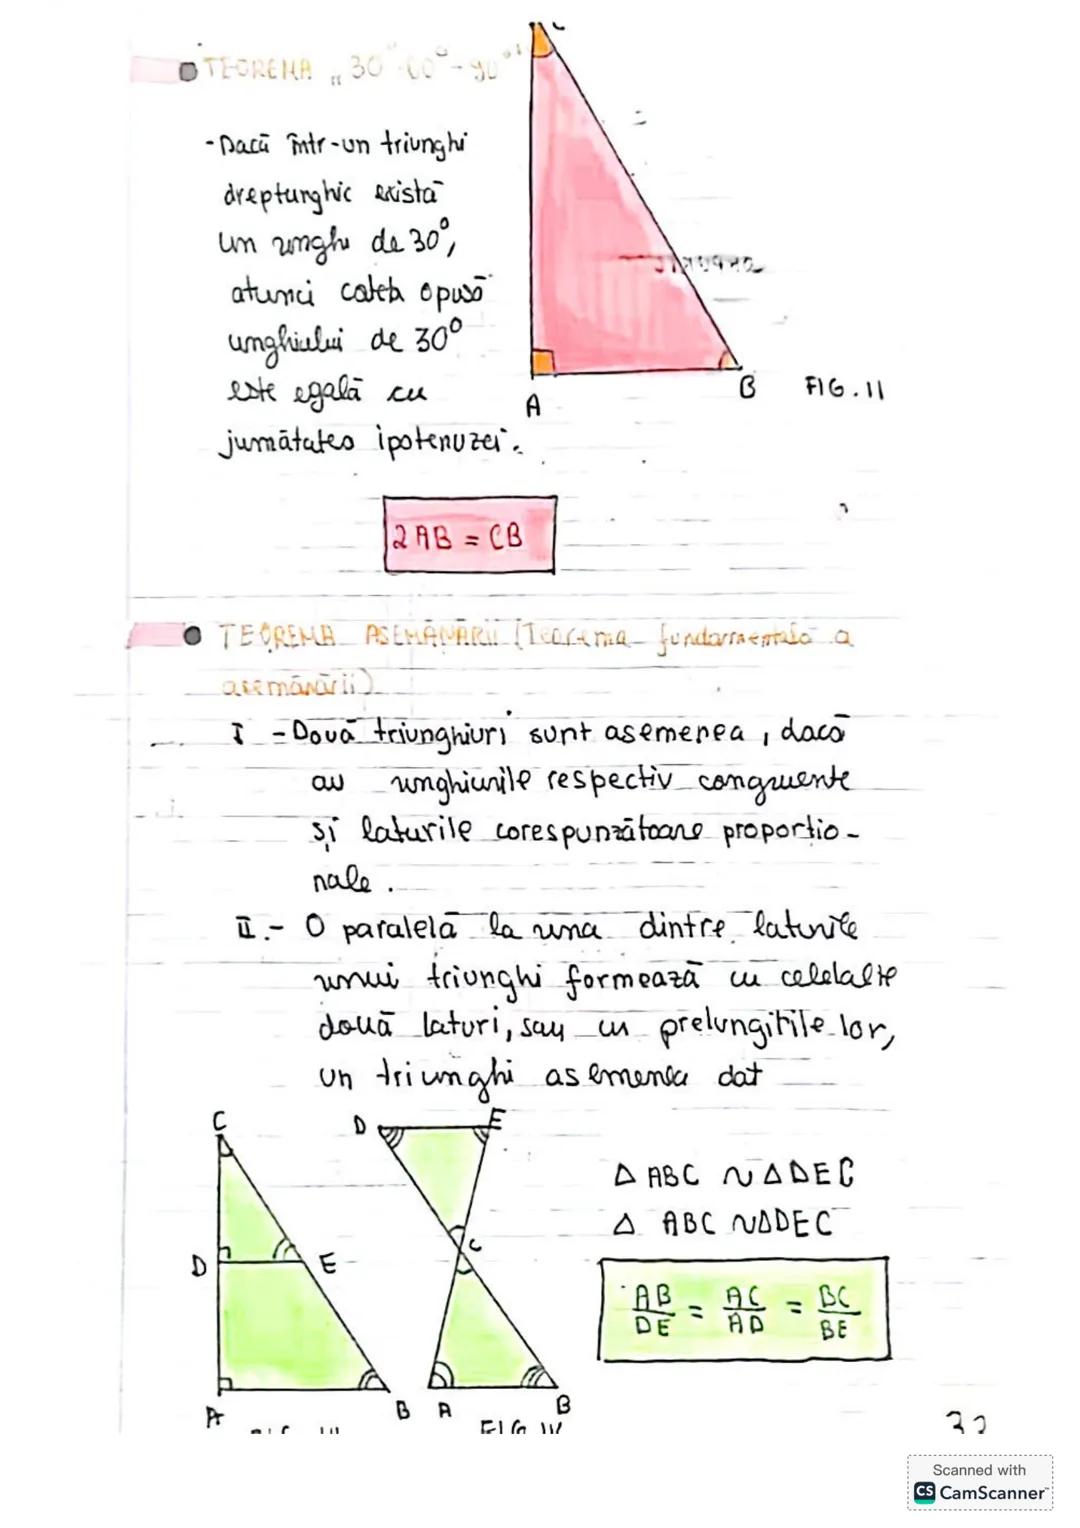 TEOREMA „30°-60°-90°"
C
-Dacă într-un triunghi
dreptunghic există
un unghi de 30°,
atunci cateta opusă
unghiului de 30°
este egală cu
jumătatea ipotenuzei.
A
B
FIG. II
2AB = CB
TEOREMA ASEMĂNĂRII (Teorema fundamentală a
asemănării)
I - Două triunghiuri sunt asemenea, dacă
au unghiurile respectiv congruente
și laturile corespunzătoare proporțio-
nale.
II.- O paralelă la una dintre laturile
unui triunghi formează cu celelalte
două laturi, sau cu prelungirile lor,
un triunghi asemenea dat
C
D
E
D
E
C
A
B
A
B
FIG. III
FIG IV
Δ ABC ~ Δ DEC
Δ ABC ~ Δ DEC
AB/DE = AC/AD = BC/BE
Scanned with
CS CamScanner